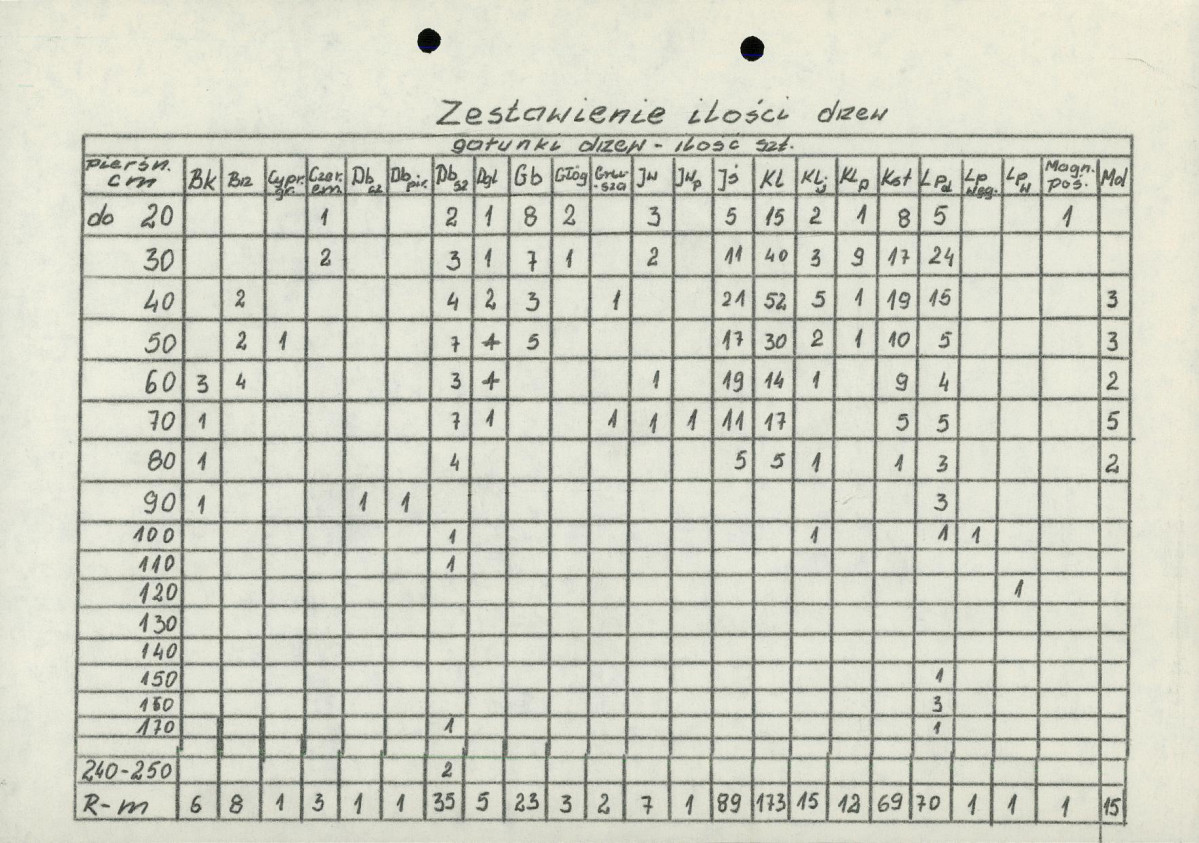 Zestawienie ilości drzew
gatunki drzew - ilość szt.
pierśn. cm Bk Brz Cypr. gr. Czer. em. Db cz Db pir. Db sz Dgl Gb Głóg Gru-sza Jw Jw p Jś Kl Kl. j Kl p Kst Lp d Lp węg. Lp w Magn. poś. Mol
do 20 1 2 1 8 2 3 5 15 2 1 8 5 1
30 2 3 1 7 1 2 11 40 3 9 17 24
40 2 4 2 3 1 21 52 5 1 19 15 3
50 2 1 7 5 17 30 2 1 10 5 3
60 3 4 3 1 19 14 1 9 4 2
70 1 7 1 1 1 1 11 17 5 5 5
80 1 4 5 5 1 1 3 2
90 1 1 1 3
100 1 1 1 1
110 1
120 1
130
140
150 1
160 3
170 1 1
240-250 2
R-m 6 8 1 3 1 1 35 5 23 3 2 7 1 89 173 15 12 69 70 1 1 1 15